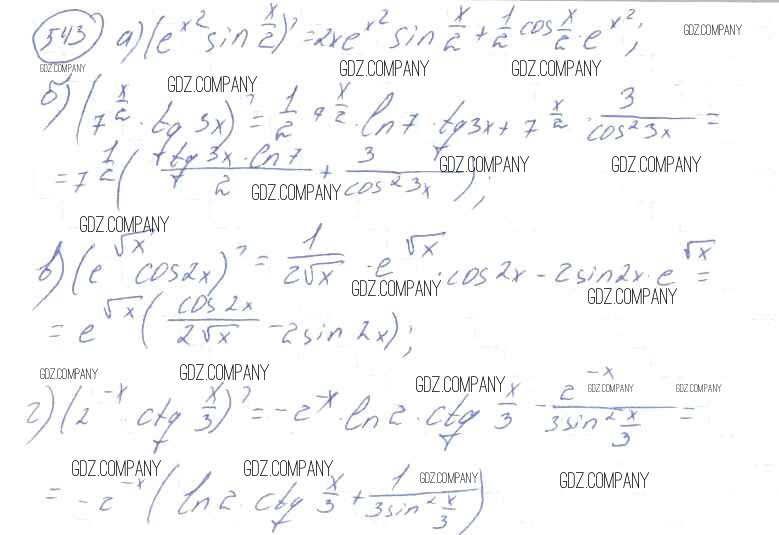 543 а) (e^{x^2} sin x/2)' = 2xe^{x^2} sin x/2 + 1/2 cos x/2 · e^{x^2};
GDZ.COMPANY
GDZ.COMPANY GDZ.COMPANY GDZ.COMPANY GDZ.COMPANY
б) (7^{x/2} · tg 3x)' = 1/2 7^{x/2} · ln7 · tg3x + 7^{x/2} · 3/cos²3x =
= 7^{1/2} (tg 3x · ln7/2 + 3/cos²3x);
GDZ.COMPANY GDZ.COMPANY GDZ.COMPANY
GDZ.COMPANY
в) (e^{√x} cos2x)' = 1/2√x · e^{√x} · cos2x − 2sin2x · e^{√x} =
GDZ.COMPANY GDZ.COMPANY
= e^{√x} (cos2x/2√x − 2sin 2x);
GDZ.COMPANY GDZ.COMPANY GDZ.COMPANY GDZ.COMPANY GDZ.COMPANY
г) (2^{-x} · ctg x/3)' = −2^{-x} · ln2 · ctg x/3 − 2^{-x}/3sin² x/3 =
GDZ.COMPANY GDZ.COMPANY GDZ.COMPANY GDZ.COMPANY
= −2^{-x} (ln2 · ctg x/3 + 1/3sin² x/3)